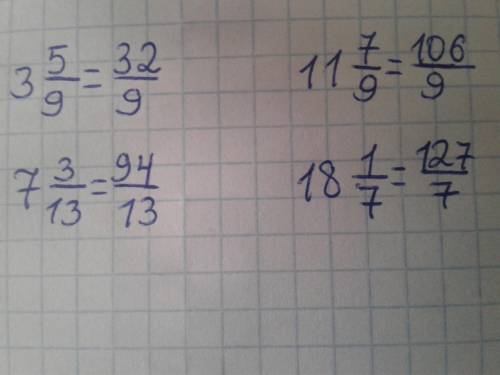 3 5/9 = 32/9
11 7/9 = 106/9
7 3/13 = 94/13
18 1/7 = 127/7